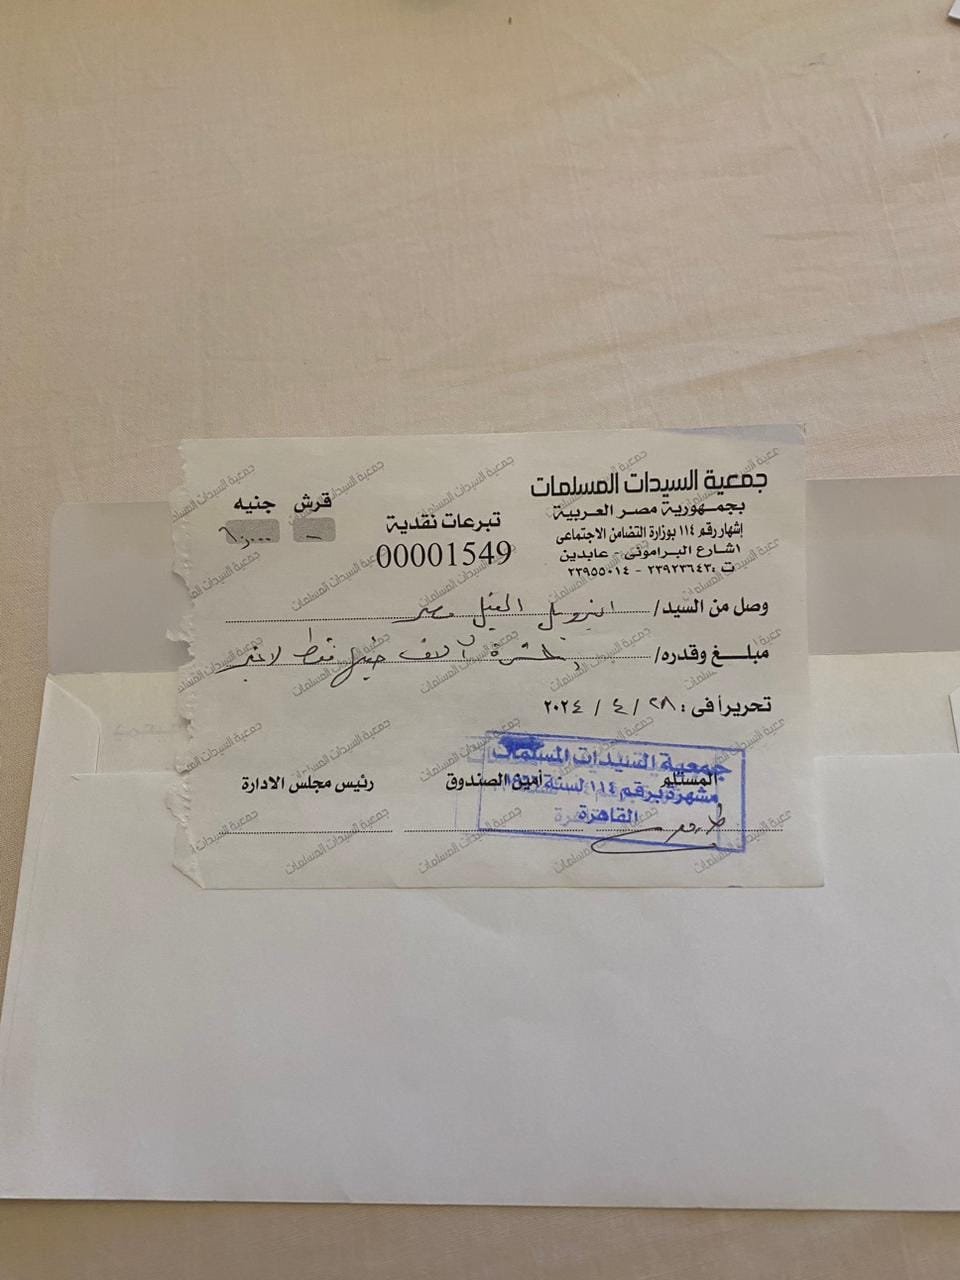 جمعية السيدات المسلمات
بجمهورية مصر العربية
إشهار رقم ١١٤ بوزارة التضامن الاجتماعى
١ شارع البرامونى - عابدين
ت : ٢٣٩٢٣٦٤٣ - ٢٣٩٥٥٠١٤
تبرعات نقدية
00001549
قرش جنيه
- ١٠,٠٠٠
وصل من السيد/ مصر
مبلغ وقدره/ عشرة آلاف جنيه فقط لا غير
تحريرا فى : ٢٨ / ٤ / ٢٠٢٤
المستلم أمين الصندوق رئيس مجلس الادارة
جمعية السيدات المسلمات
مشهرة برقم ١١٤ لسنة
القاهرة